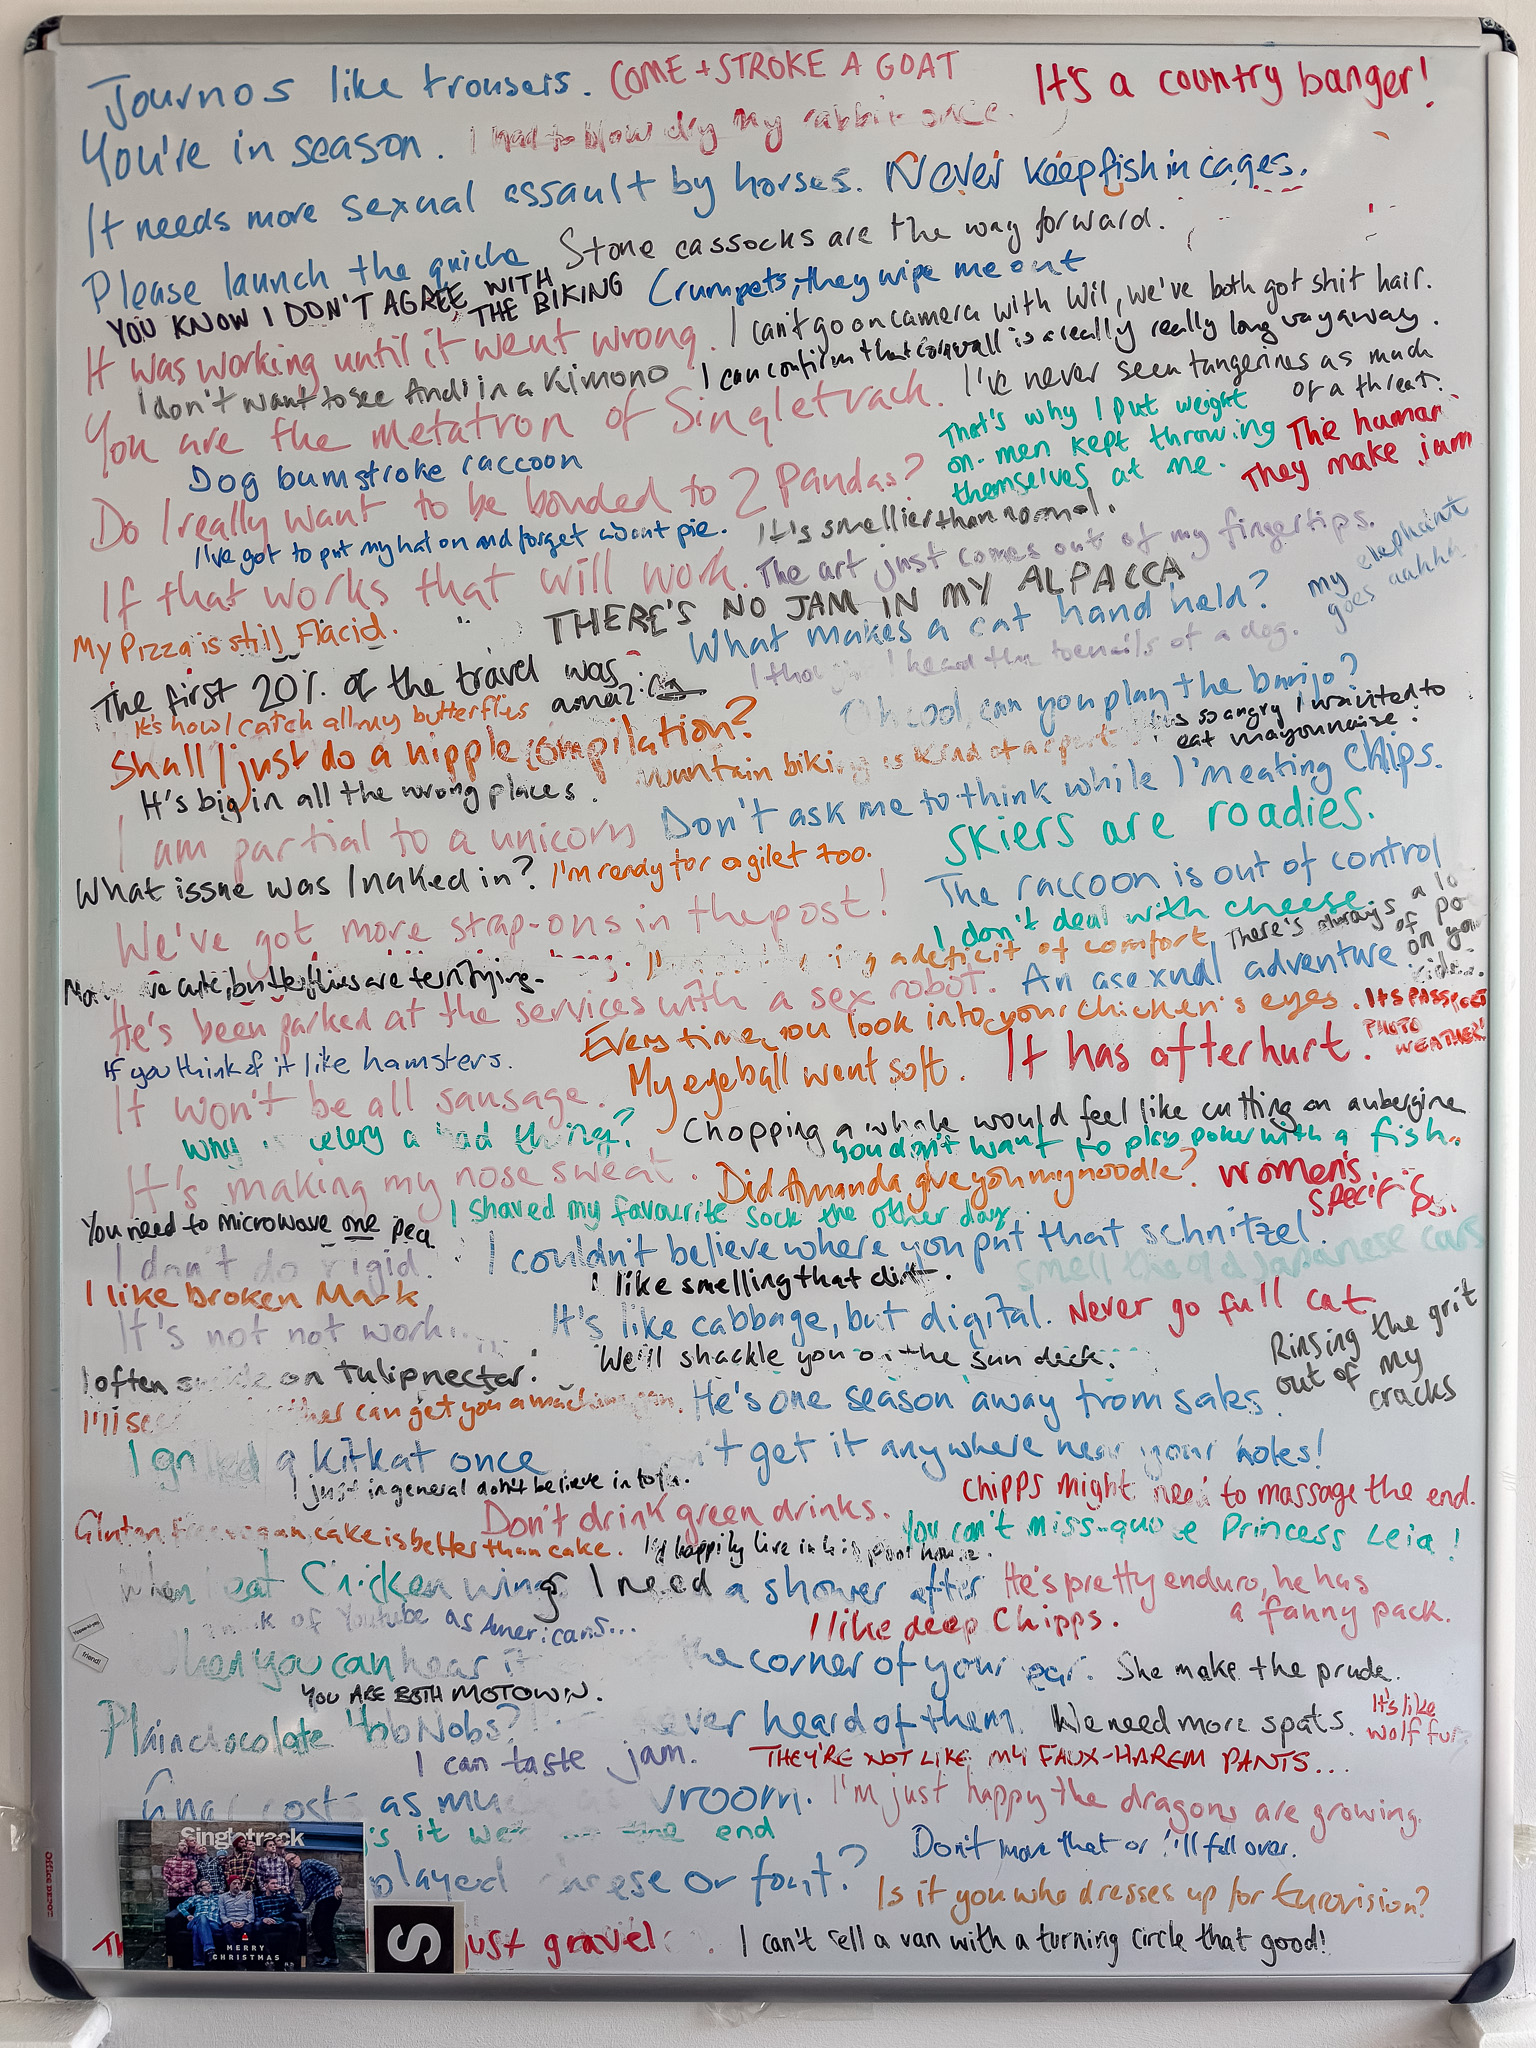 Journos like trousers. COME + STROKE A GOAT It's a country banger!
You're in season. I had to blow dry my rabbit once.
It needs more sexual assault by horses. Never keep fish in cages.
Please launch the quiche Stone cassocks are the way forward.
YOU KNOW I DON'T AGREE WITH THE BIKING Crumpets, they wipe me out
It was working until it went wrong. I can't go on camera with Wil, we've both got shit hair.
I don't want to see Andi in a Kimono I can confirm that cornwall is a really really long way away.
You are the metatron of Singletrack. I've never seen tangerines as much of a threat.
Dog bum stroke raccoon That's why I put weight on - men kept throwing themselves at me. The human
They make jam
Do I really want to be bonded to 2 Pandas?
I've got to put my hat on and forget about pie. It's smellier than normal.
If that works that will work. The art just comes out of my fingertips. my elephant goes aahhh
THERE'S NO JAM IN MY ALPACCA
My Pizza is still Flacid. What makes a cat hand held?
The first 20% of the travel was amazing I heard the toenails of a dog.
It's how I catch all my butterflies cool, can you play the banjo?
so angry I wanted to eat mayonnaise.
Shall I just do a nipple compilation? mountain biking is kind of a sport
It's big in all the wrong places. Don't ask me to think while I'm eating Chips.
I am partial to a unicorn SKiERS are roadies.
What issue was I naked in? I'm ready for a gilet too. The raccoon is out of control
We've got more strap-ons in the post! I don't deal with cheese. There's always a
a deficit of comfort
cute, butterflies are terrifying. An asexual adventure
He's been parked at the services with a sex robot.
Every time you look into your chicken's eyes. ITS PASSPORT PHOTO WEATHER!
If you think of it like hamsters. My eyeball went soft. It has afterhurt.
It won't be all sausage. Chopping a whale would feel like cutting an aubergine
Why celery a bad thing? You don't want to play poker with a fish.
It's making my nose sweat. Did Amanda give you my noodle? Women's
You need to microwave one pea I shaved my favourite sock the other day.
I don't do rigid. I couldn't believe where you put that schnitzel.
smell the old Japanese cars
I like broken Mark I like smelling that
It's not not work It's like cabbage, but digital. Never go full cat.
I often on tulip nectar. We'll shackle you on the sun deck. Rinsing the grit out of my cracks
can get you a machine gun. He's one season away from
I a kitkat once get it anywhere near your holes!
I just in general don't believe in tofu. Chipps might need to massage the end.
Don't drink green drinks. You can't miss-quote Princess Leia!
Gluten free vegan cake is better than cake. I'd happily live in his
When I eat Chicken wings I need a shower after He's pretty enduro, he has a fanny pack.
of Youtube as Americans... I like deep Chipps.
When you can hear it the corner of your ear. She make the prude.
YOU ARE BOTH MOTOWN.
Plain chocolate HobNobs? never heard of them. We need more spats. It's like wolf fur
I can taste jam. THEY'RE NOT LIKE MY FAUX-HAREM PANTS...
costs as much vroom. I'm just happy the dragons are growing.
it the end Don't move that or I'll fall over.
played cheese or font? Is it you who dresses up for Eurovision?
just gravel I can't sell a van with a turning circle that good!
Singletrack
MERRY CHRISTMAS
S
Office DEPOT
friend!